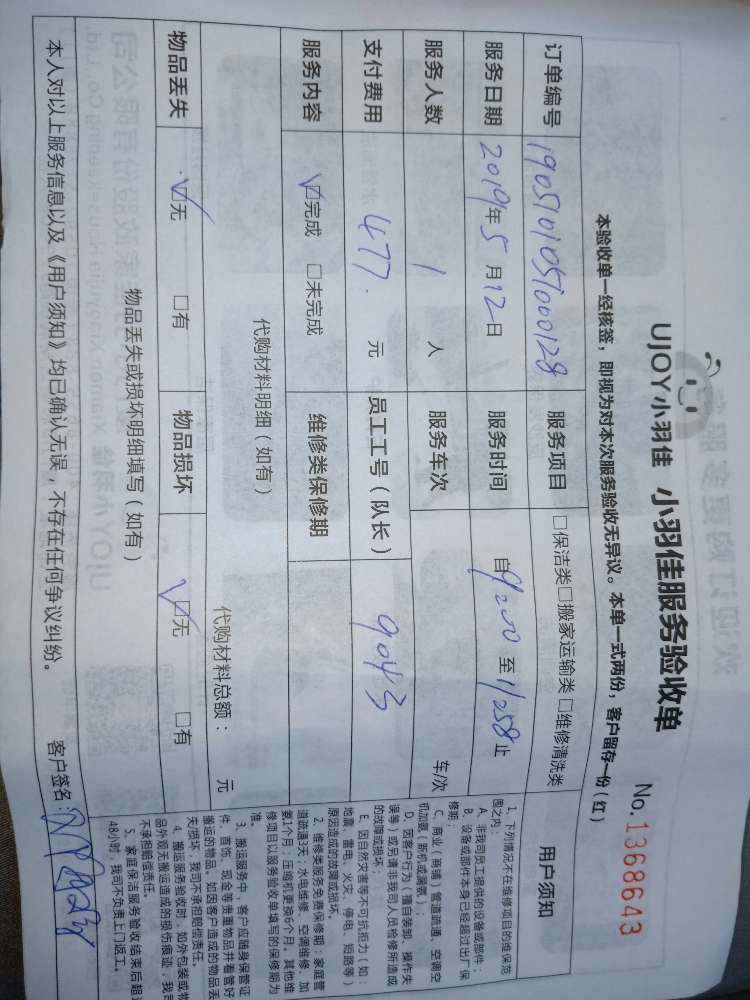 UJOY小羽佳 小羽佳服务验收单
No. 1368643
本验收单一经核签，即视为对本次服务验收无异议。本单一式两份，客户留存一份（红）
订单编号 1905101051000128 服务项目 □保洁类□搬家运输类□维修清洗类
服务日期 2019年5月12日 服务时间 自9:00至11:58止
服务人数 1 人 服务车次 车/次
支付费用 477. 元 员工工号（队长） 9043
服务内容 ☑完成 □未完成 维修类保修期
代购材料明细（如有）
代购材料总额： 元
物品丢失 ☑无 □有 物品损坏 ☑无 □有
物品丢失或损坏明细填写（如有）
本人对以上服务信息以及《用户须知》均已确认无误，不存在任何争议纠纷。 客户签名：
用户须知
1、下列情况不在维修项目的维保范
围之内：
A、非我司员工提供的设备或部件；
B、设备或部件本身已经超过出厂保
修期；
C、商业（商铺）管道疏通、空调空
机加氨（新机或漏氨）；
D、因客户行为（擅自装卸、操作失
误等）或应邀请非我司人员检修所造成
的故障或损坏；
E、因自然灾害等不可抗拒力（如：
地震、雷电、火灾、停电、短路等）
原因造成的故障或损坏。
2、维修类服务免费保修期：家庭管
道疏通3天；水电维修、空调维修、加
氨1个月；压缩机更换6个月，其他维
修项目以服务验收单填写的保修期为
准。
3、搬运服务中，客户应随身保管证
件、首饰、现金等贵重物品并看管好
搬运的物品。如因客户造成的物品丢
失/损坏，我司不承担赔偿责任。
4、搬运服务验收时，如外包装或物
品外观无搬运造成的损伤痕迹，我司
不承担赔偿责任。
5、家庭保洁服务验收结束后超过
48小时，我司不负责上门返工。